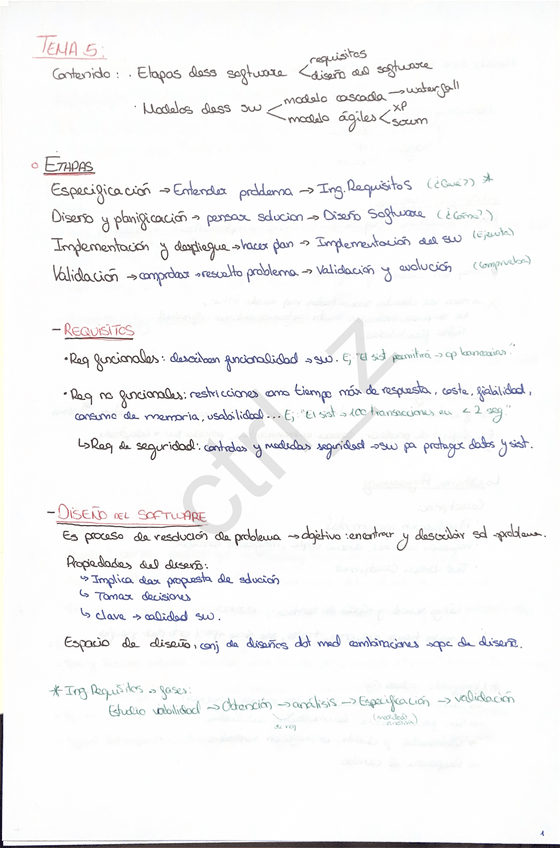 TEMA 5:
Contenido: · Etapas dess software < requisitos
diseño del software
· Modelos dess sw < modelo cascada → waterfall
modelo ágiles < XP
scrum
○ ETAPAS
Especificación → Entender problema → Ing. Requisitos (¿Qué?) *
Diseño y planificación → pensar solucion → Diseño Software (¿Cómo?)
Implementación y despliegue → hacer plan → Implementación del sw (Ejecuta)
Validación → comprobar → resuelto problema → Validación y evolución (comprueba)
- REQUISITOS
• Req funcionales: describen funcionalidad → sw. Ej "El sist permitirá → op bancarias."
• Req no funcionales: restricciones como tiempo máx de respuesta, coste, fiabilidad,
consumo de memoria, usabilidad... Ej "El sist → 100 transacciones en < 2 seg"
↳ Req de seguridad: controles y medidas seguridad → sw pa proteger datos y sist.
- DISEÑO DEL SOFTWARE
Es proceso de resolución de problema → objetivo: encontrar y describir sol → problema.
Propiedades del diseño:
↳ Implica dar propuesta de solución
↳ Tomar decisiones
↳ clave → calidad sw.
Espacio de diseño, conj de diseños dot med combinaciones → opc de diseño.
* Ing Requisitos → fases:
Estudio viabilidad → Obtención → análisis → Especificación → validación
de req
ctrl_z
1